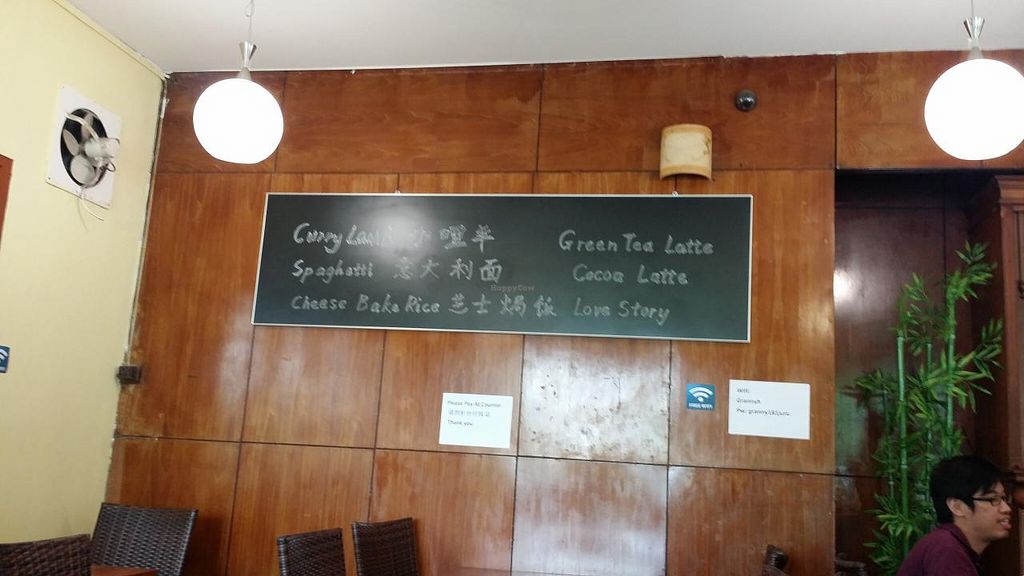 Curry Laksa 沙喱叻
Spaghetti 意大利面
Cheese Bake Rice 芝士焗飯
Green Tea Latte
Cocoa Latte
Love Story
HappyCow
Please Pay At Counter
Thank you
FREE WIFI
Wifi: